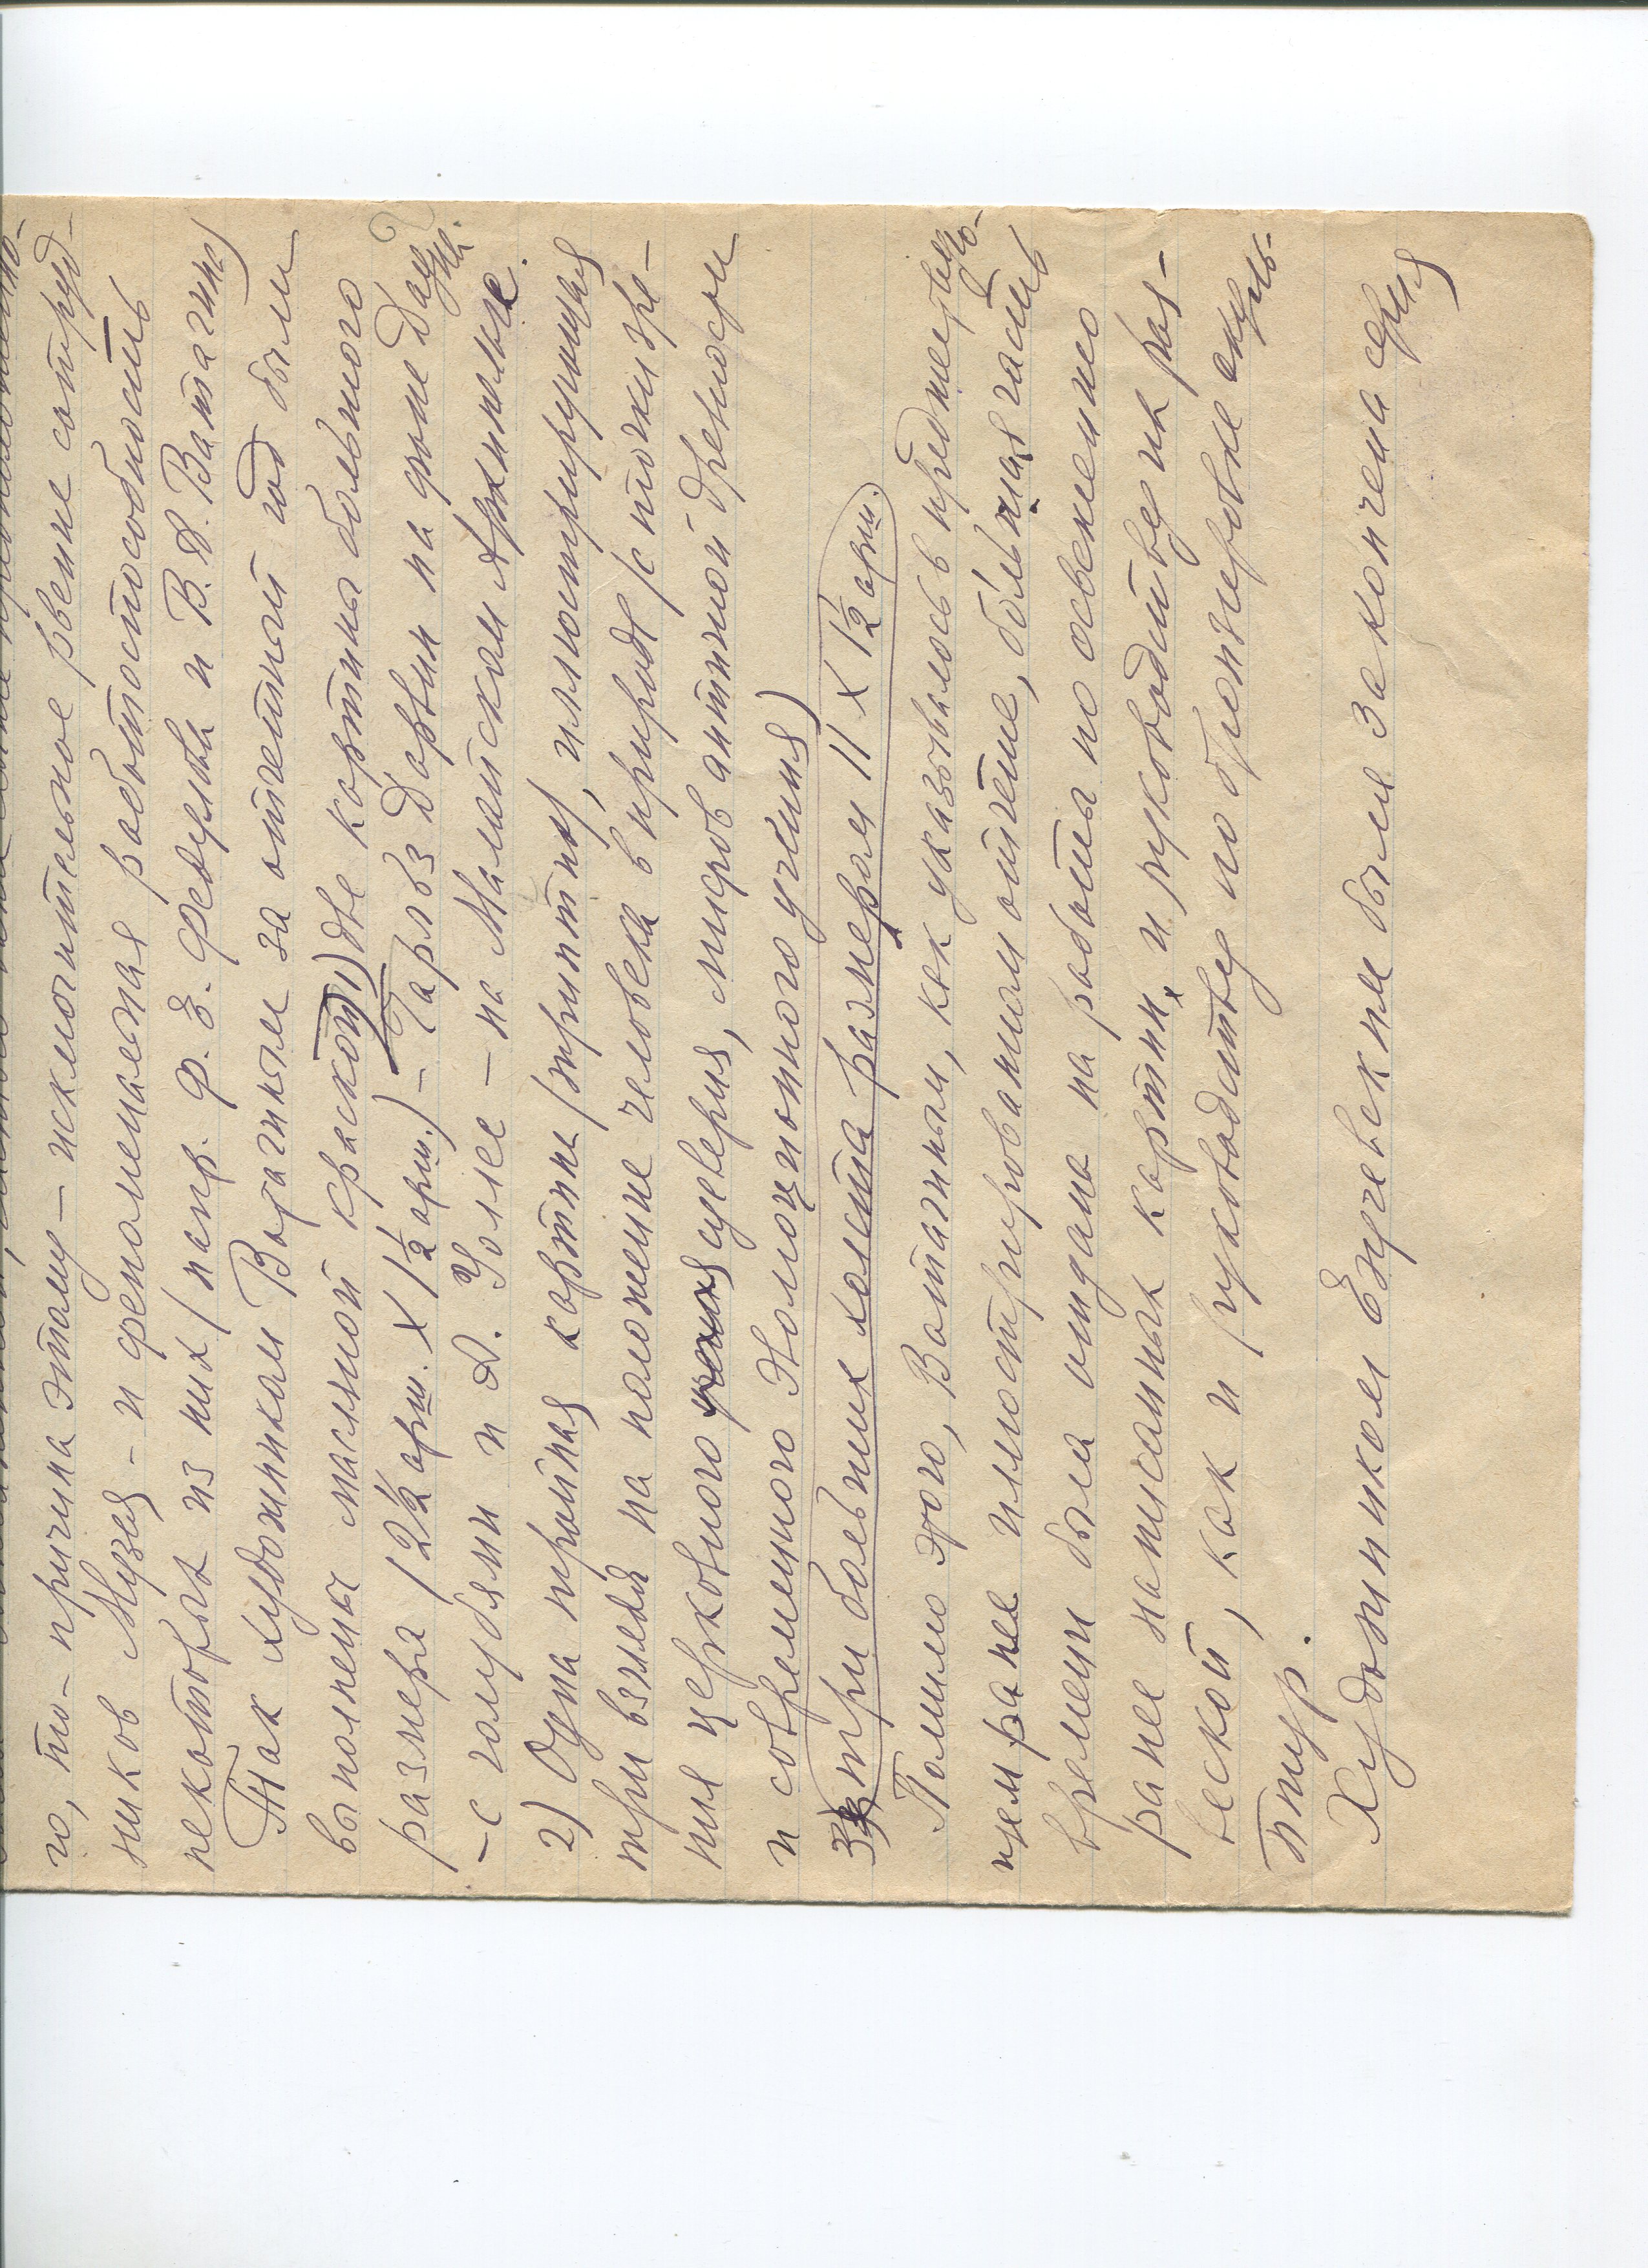 го, то – причина этому – исключительное рвение сотруд-
ников Музея – и феноменальная работоспособность
некоторых из них (напр. Ф. Е. Федулова и В. А. Ватагина)
Так художником Ватагиным за отчетный год были
выполнены масляной краской 1) две картины большого
размера (2½ арш. X 1½ арш.) – Чарльз Дарвин на фоне Дауна
– с голубями и А. Уоллес – на Малайском Архипелаге.
2) Одна тройная картина (триптих), иллюстрирующая
три взгляда на положение человека в природе (с точки зре-
ния церковного суеверия, мифов античной древности
и современного эволюционного учения)
3) три больших холста размером 11 X 1½ арш.
Помимо этого, Ватагиным, как указывалось в предшествую-
щем ранее иллюстрированном отчете, большая часть
времени была отдана на работы по освежению
ранее написанных картин и руководству их раз-
веской, как и руководству по бронзировке скуль-
птур.
Художником Езучевским была закончена серия